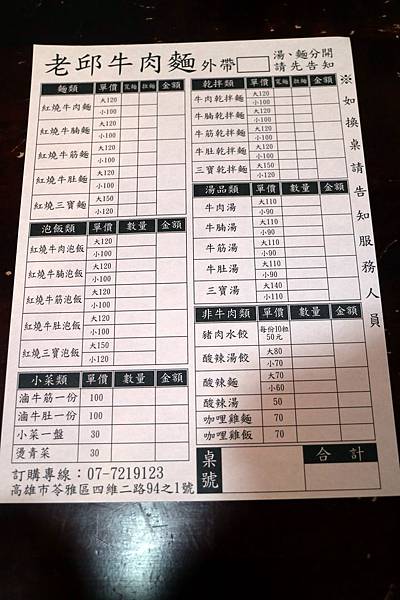 老邱牛肉麵 外帶
湯、麵分開
請先告知
※如換桌請告知服務人員
麵類 單價 寬麵 拉麵 金額
紅燒牛肉麵 大120 小100
紅燒牛腩麵 大120 小100
紅燒牛筋麵 大120 小100
紅燒牛肚麵 大120 小100
紅燒三寶麵 大150 小120
泡飯類 單價 數量 金額
紅燒牛肉泡飯 大120 小100
紅燒牛腩泡飯 大120 小100
紅燒牛筋泡飯 大120 小100
紅燒牛肚泡飯 大120 小100
紅燒三寶泡飯 大150 小120
小菜類 單價 數量 金額
滷牛筋一份 100
滷牛肚一份 100
小菜一盤 30
燙青菜 30
乾拌類 單價 寬麵 拉麵 金額
牛肉乾拌麵 大120 小100
牛腩乾拌麵 大120 小100
牛筋乾拌麵 大120 小100
牛肚乾拌麵 大120 小100
三寶乾拌麵 大150 小120
湯品類 單價 數量 金額
牛肉湯 大110 小90
牛腩湯 大110 小90
牛筋湯 大110 小90
牛肚湯 大110 小90
三寶湯 大140 小110
非牛肉類 單價 數量 金額
豬肉水餃 每份10粒 50元
酸辣湯餃 大80 小70
酸辣麵 大70 小60
酸辣湯 50
咖哩雞麵 70
咖哩雞飯 70
桌號 合計
訂購專線：07-7219123
高雄市苓雅區四維二路94之1號